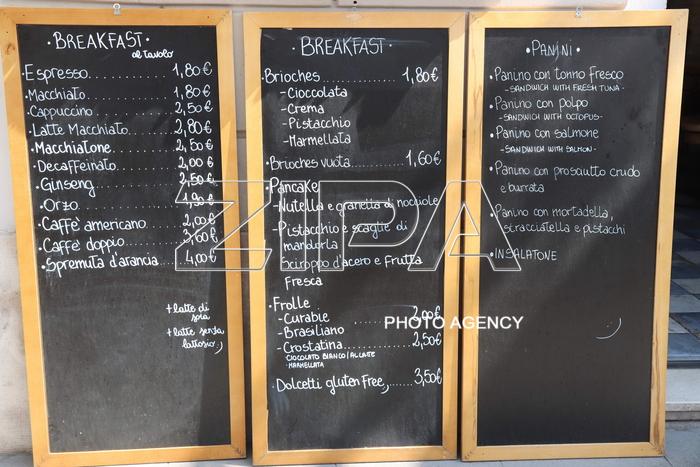 ·BREAKFAST·
al tavolo
·Espresso............1,80€
·Macchiato............1,80€
·Cappuccino............2,50€
·Latte Macchiato............2,80€
·Macchiatone............2,50€
·Decaffeinato............2,00€
·Ginseng............2,50€
·Orzo............
·Caffe' americano............2,00€
·Caffe' doppio............
·Spremuta d'arancia............4,00€
+latte di
soia
+latte senza
lattosio
·BREAKFAST·
·Brioches............1,80€
-Cioccolata
-Crema
-Pistacchio
-Marmellata
·Brioches vuota............1,60€
·Pancake
-Nutella e granella di nocciole
-Pistacchio e scaglie di
mandorla
Sciroppo d'acero e Frutta
Fresca
·Frolle
-Curabie............2,00€
-Brasiliano
-Crostatina............2,50€
CIOCCOLATO BIANCO/AL LATTE
·MARMELLATA
·Dolcetti gluten Free,......3,50€
·PANINI·
·Panino con tonno fresco
-SANDWICH WITH FRESH TUNA-
·Panino con polpo
-SANDWICH WITH OCTOPUS-
·Panino con salmone
-SANDWICH WITH SALMON-
·Panino con prosciutto crudo
e burrata
·Panino con mortadella,
stracciatella e pistacchi
·INSALATONE
ZIPA
PHOTO AGENCY